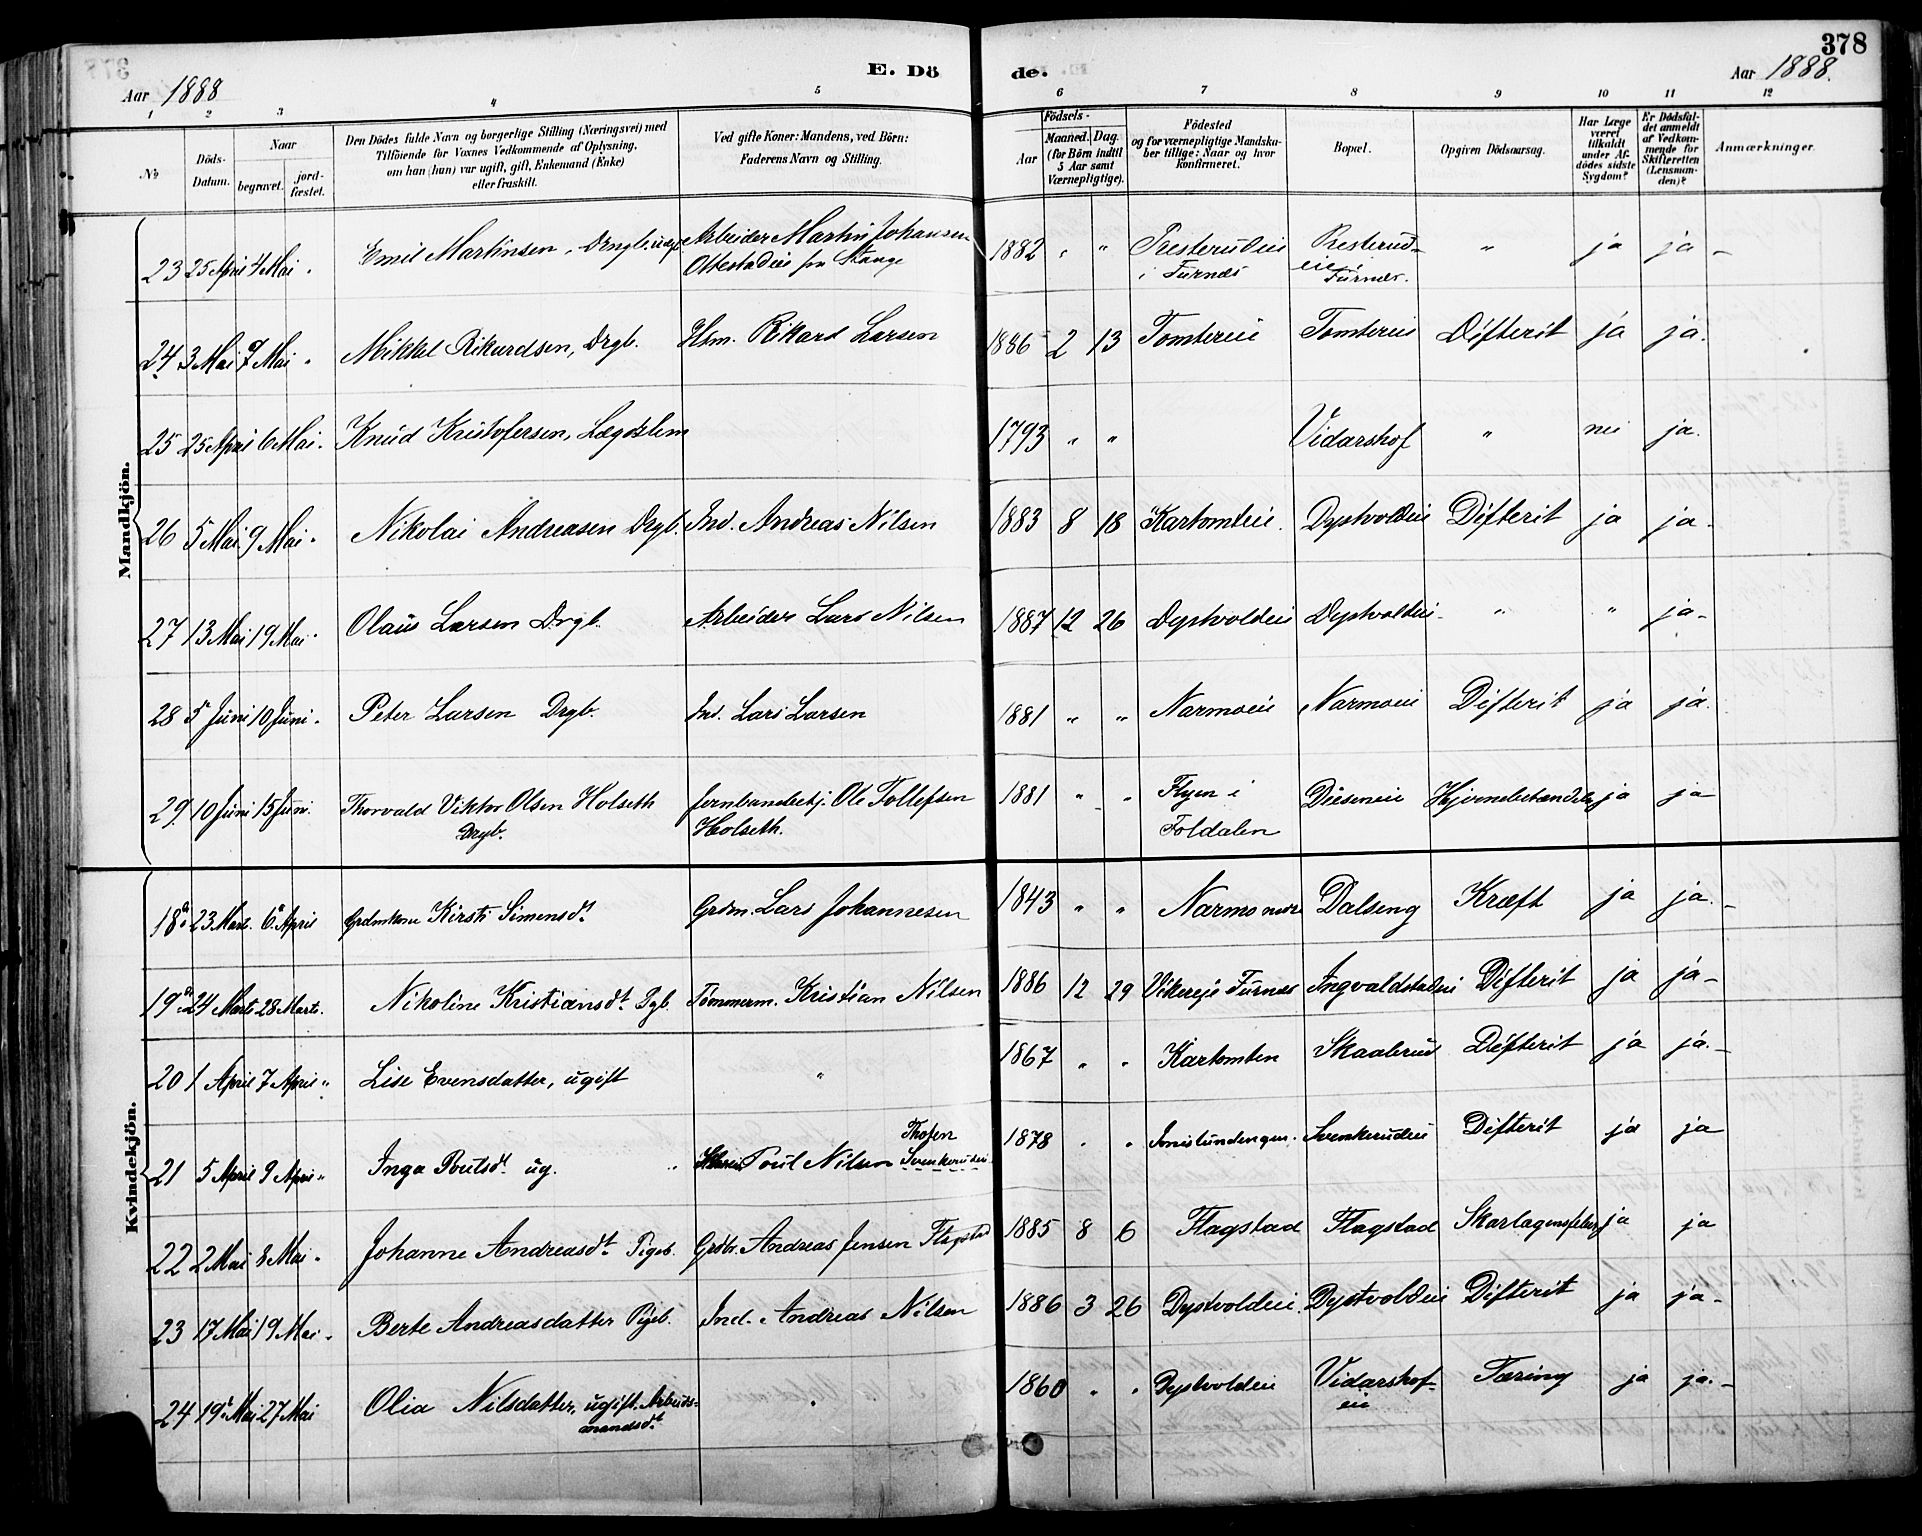 378
Aar 1888
E. Dö
de.
Aar 1888.
1 2 3 4 5 6 7 8 9 10 11 12
No
Döds-Datum.
Naar
begravet.
jord-fæstet.
Den Dödes fulde Navn og borgerlige Stilling (Næringsvei) med
Tilföiende for Voxnes Vedkommende af Oplysning,
om han (hun) var ugift, gift, Enkemand (Enke)
eller fraskilt.
Ved gifte Koner: Mandens, ved Börn:
Faderens Navn og Stilling.
Födsels-
Aar
Maaned. Dag.
(for Börn indtil
5 Aar samt
Værnepligtige).
Födested
og for værnepligtige Mandska-
ber tillige: Naar og hvor
konfirmeret.
Bopæl.
Opgiven Dödsaarsag.
Har Læge
været
tilkaldt
under Af-
dödes sidste
Sygdom?
Er Dödsfal-
det anmeldt
af Vedkom-
mende for
Skifteretten
(Lensman-
den)?
Anmærkninger.
Mandkjön.
23 25 April 4 Mai " Emil Martinsen, Drengb. Arbeider Martin Johansen 1882 " " Presterudeie Presterud- " ja ja -
Ottestadeie fra Stange i Furnes eie i Furnes.
24 3 Mai 7 Mai " Mikkel Rikardsen, Drgb. Hsm. Rikard Larsen 1886 2 13 Tomtereie Tomtereie Difterit ja ja.
25 25 April 6 Mai " Knud Kristofersen, Lægdslem 1793 " " Vidarshof " nei ja.
26 5 Mai 9 Mai " Nikolai Andreasen Drgb. Ind. Andreas Nilsen 1883 8 18 Kartomteie. Dystvoldeie Difterit ja ja -
27 13 Mai 19 Mai " Olaus Larsen Drgb. Arbeider Lars Nilsen 1887 12 26 Dystvoldeie Dystvoldeie " " ja -
28 5 Juni 10 Juni " Peter Larsen Drgb. Ind. Lars Larsen 1881 " " Narmoeie Narmoeie Difterit ja ja.
29 10 Juni 15 Juni. Thorvald Viktor Olsen Holseth Jernbanebetj. Ole Tollefsen 1881 " " Flyen i Dieseneie Hjernebetændelse ja ja
Drgb. Holseth. Foldalen
Kvindekjön.
18 23 Marts. 6 April Grdmkone Kirsti Simensdt Grdm. Lars Johannesen 1843 " " Narmo nedre Dalseng Kræft ja ja. -
19 24 Marts 28 Marts. Nikoline Kristiansdt Pgb. Tömmerm. Kristian Nilsen 1886 12 29 Vikereje Furnes Ingvaldstadeie Difterit ja ja -
20 1 April 7 April " Lise Evensdatter, ugift " 1867 " " Kartomten Skaalerud Difterit ja ja. -
21 5 April 9 April " Inga Poulsdt ug. " Poul Nilsen Svenkerudeie 1878 " " Svenkerudeie Difterit ja ja
22 2 Mai 8 Mai " Johanne Andreasdt Pigeb. Grdbr. Andreas Jensen Flagstad 1885 8 6 Flagstad Flagstad Skarlagensfeber ja ja
23 17 Mai 19 Mai " Berte Andreasdatter Pigeb. Ind. Andreas Nilsen 1886 3 26 Dystvoldeie Dystvoldeie Difterit ja ja -
24 19 Mai 27 Mai Olia Nilsdatter, ugift. Arbeids- " 1860 " " Dystvoldeie Vidarshof- Tæring ja ja. -
mandsdt eie